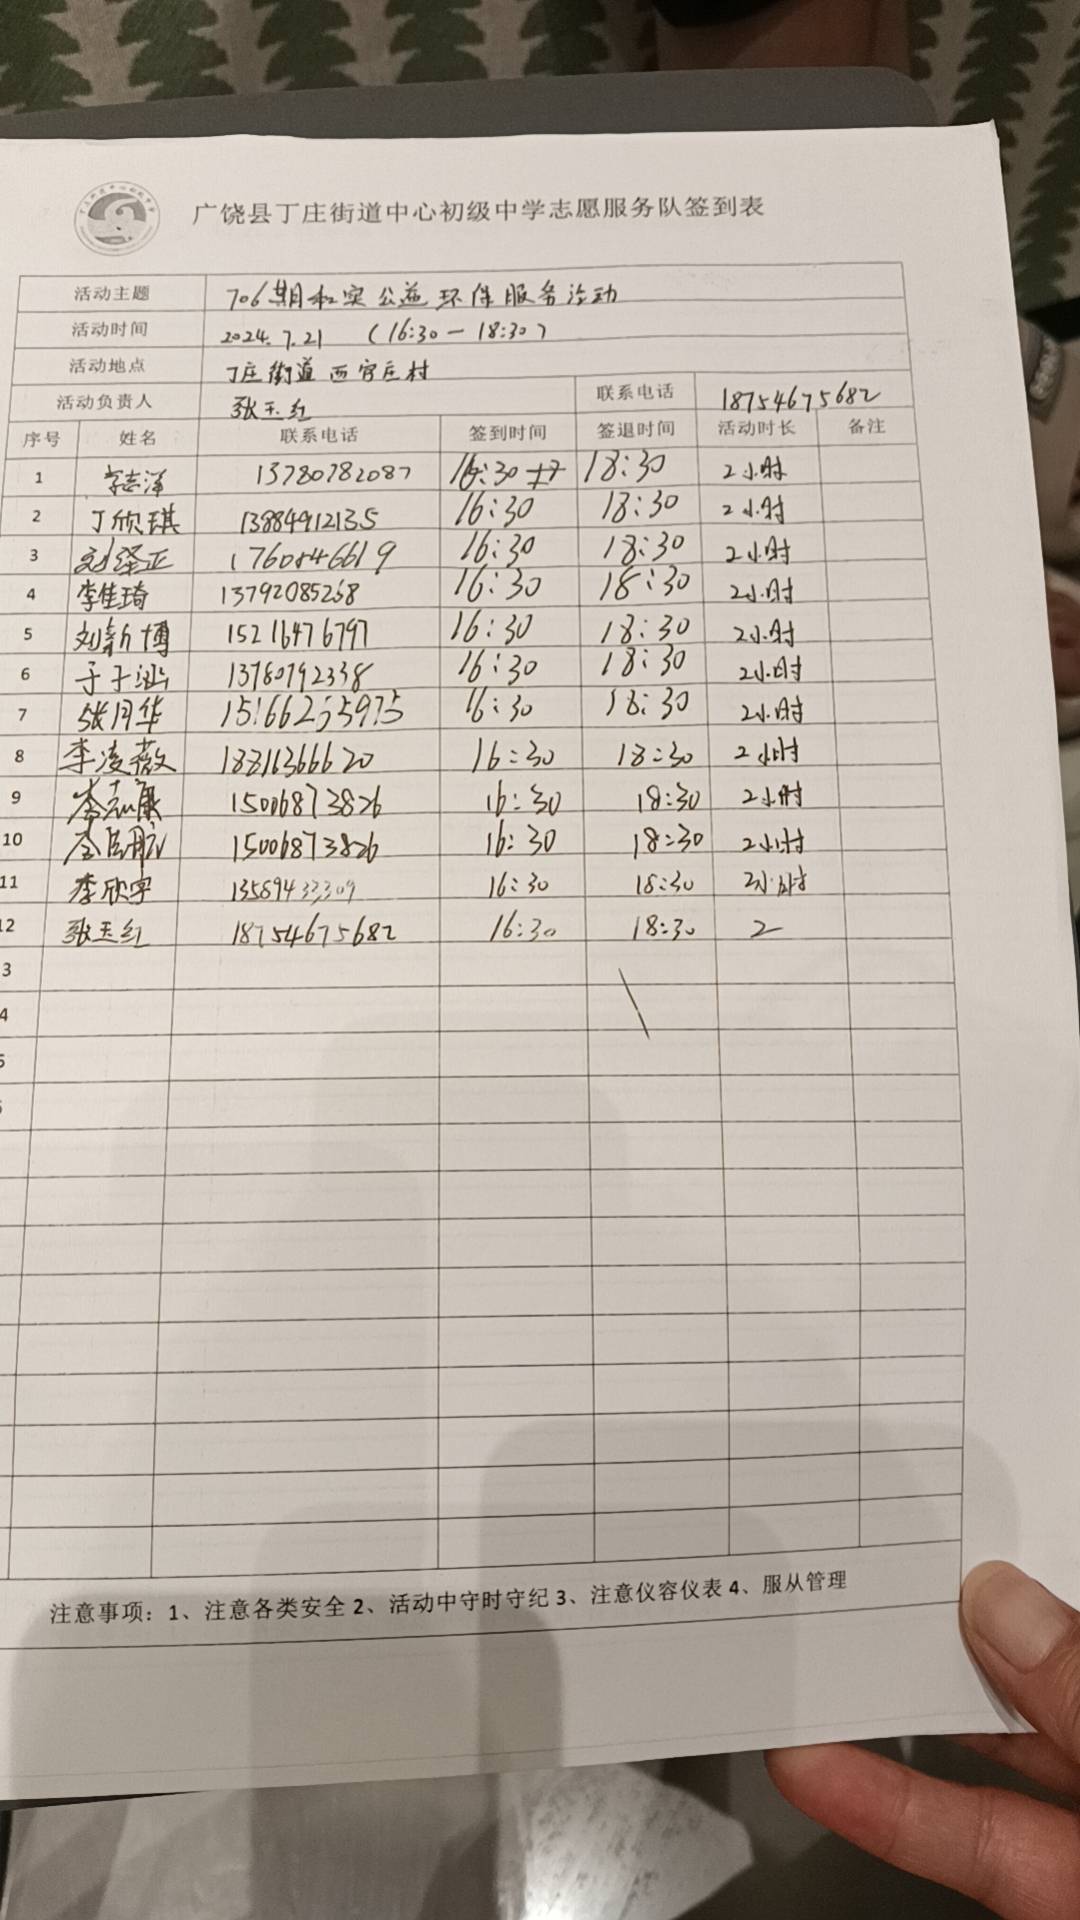 广饶县丁庄街道中心初级中学志愿服务队签到表
活动主题 706期和实公益环保服务活动
活动时间 2024.7.21 (16:30—18:30)
活动地点 丁庄街道西官庄村
活动负责人 张玉红 联系电话 18754675682
序号 姓名 联系电话 签到时间 签退时间 活动时长 备注
1 李志泽 13780782087 16:30 18:30 2小时
2 丁欣琪 13884912135 16:30 18:30 2小时
3 刘泽正 1760846619 16:30 18:30 2小时
4 李佳琦 13792085268 16:30 18:30 2小时
5 刘新博 15216476797 16:30 18:30 2小时
6 于子涵 13780792338 16:30 18:30 2小时
7 张月华 16:30 18:30 2小时
8 李凌薇 18816366620 16:30 18:30 2小时
9 李志康 15006873826 16:30 18:30 2小时
10 15006873826 16:30 18:30 2小时
11 李欣宇 16:30 18:30 2小时
12 张玉红 18754675682 16:30 18:30 2
3
4
5
注意事项：1、注意各类安全 2、活动中守时守纪 3、注意仪容仪表 4、服从管理